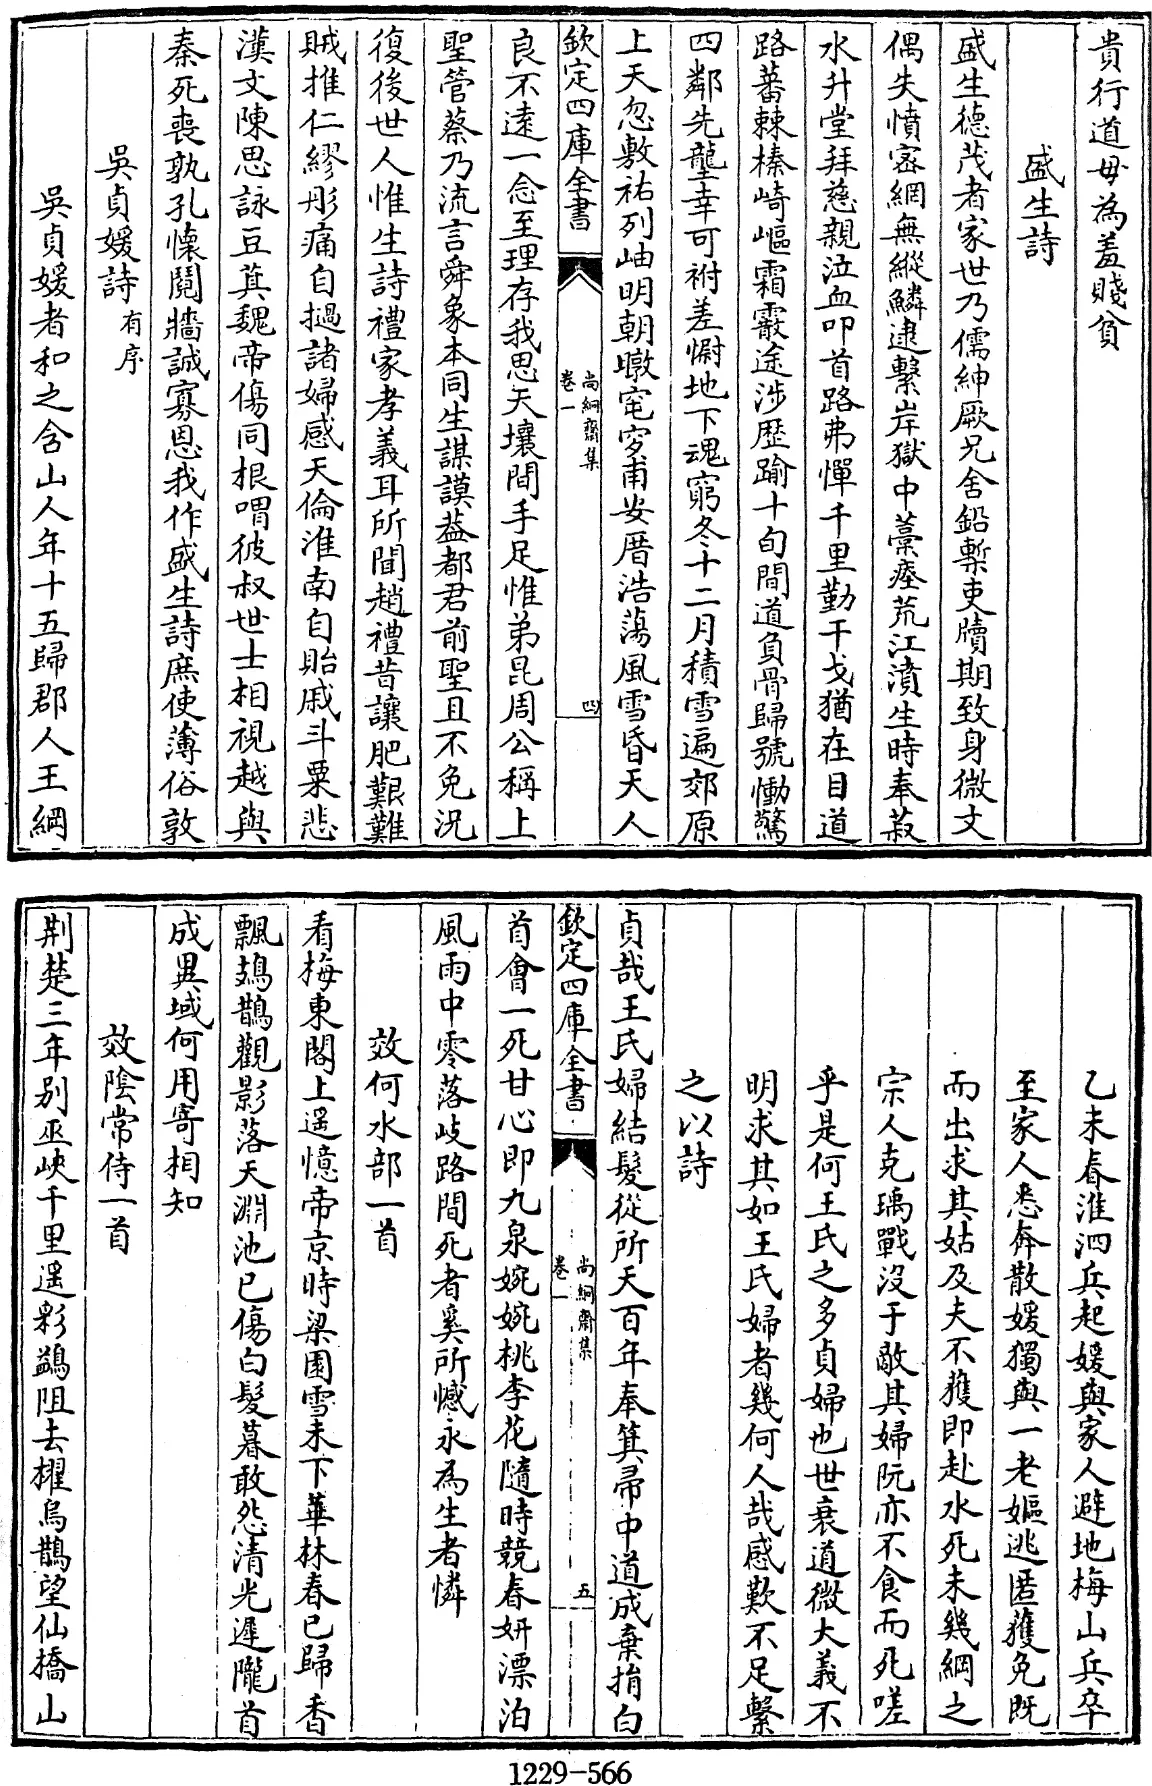 貴行道毋為羞賤貧
盛生詩
盛生德茂者家世乃儒紳厥兄舍鉛槧吏牘期致身微文
偶失憤宻網無縱鱗逮繫岸獄中藁瘞荒江濆生時奉菽
水升堂拜慈親泣血叩首路弗憚千里勤干戈猶在目道
路蕃棘榛崎嶇霜霰途涉歴踰十旬間道負骨歸號慟驚
四鄰先壟幸可祔差慰地下魂窮冬十二月積雪遍郊原
上天忽敷祐列岫明朝暾窀穸甫安厝浩蕩風雪昏天人
欽定四庫全書
尚絅齋集
卷一
四
良不逺一念至理存我思天壤間手足惟弟昆周公稱上
聖管蔡乃流言舜象本同生謀謨葢都君前聖且不免況
復後世人惟生詩禮家孝義耳所聞趙禮昔讓肥艱難
賊推仁繆彤痛自撾諸婦感天倫淮南自貽戚斗粟悲
漢文陳思詠豆萁魏帝傷同根喟彼叔世士相視越與
秦死喪孰孔懷鬩牆誠寡恩我作盛生詩庶使薄俗敦
吳貞媛詩有序
吳貞媛者和之含山人年十五歸郡人王綱
乙未春淮泗兵起媛與家人避地梅山兵卒
至家人悉奔散媛獨與一老嫗逃匿獲免既
而出求其姑及夫不獲即赴水死未幾綱之
宗人克瑀戰沒于敵其婦阮亦不食而死嗟
乎是何王氏之多貞婦也世衰道微大義不
明求其如王氏婦者幾何人哉感歎不足繫
之以詩
貞哉王氏婦結髮從所天百年奉箕帚中道成棄捐白
欽定四庫全書
尚絅齋集
卷一
五
首會一死甘心即九泉婉婉桃李花隨時競春妍漂泊
風雨中零落岐路間死者奚所憾永為生者憐
效何水部一首
看梅東閣上遥憶帝京時梁園雪未下華林春已歸香
飄鳷鵲觀影落天淵池已傷白髮暮敢怨清光遲隴首
成異域何用寄相知
效陰常侍一首
荆楚三年别巫峽千里遥彩鷁阻去櫂烏鵲望仙橋山
1229-566